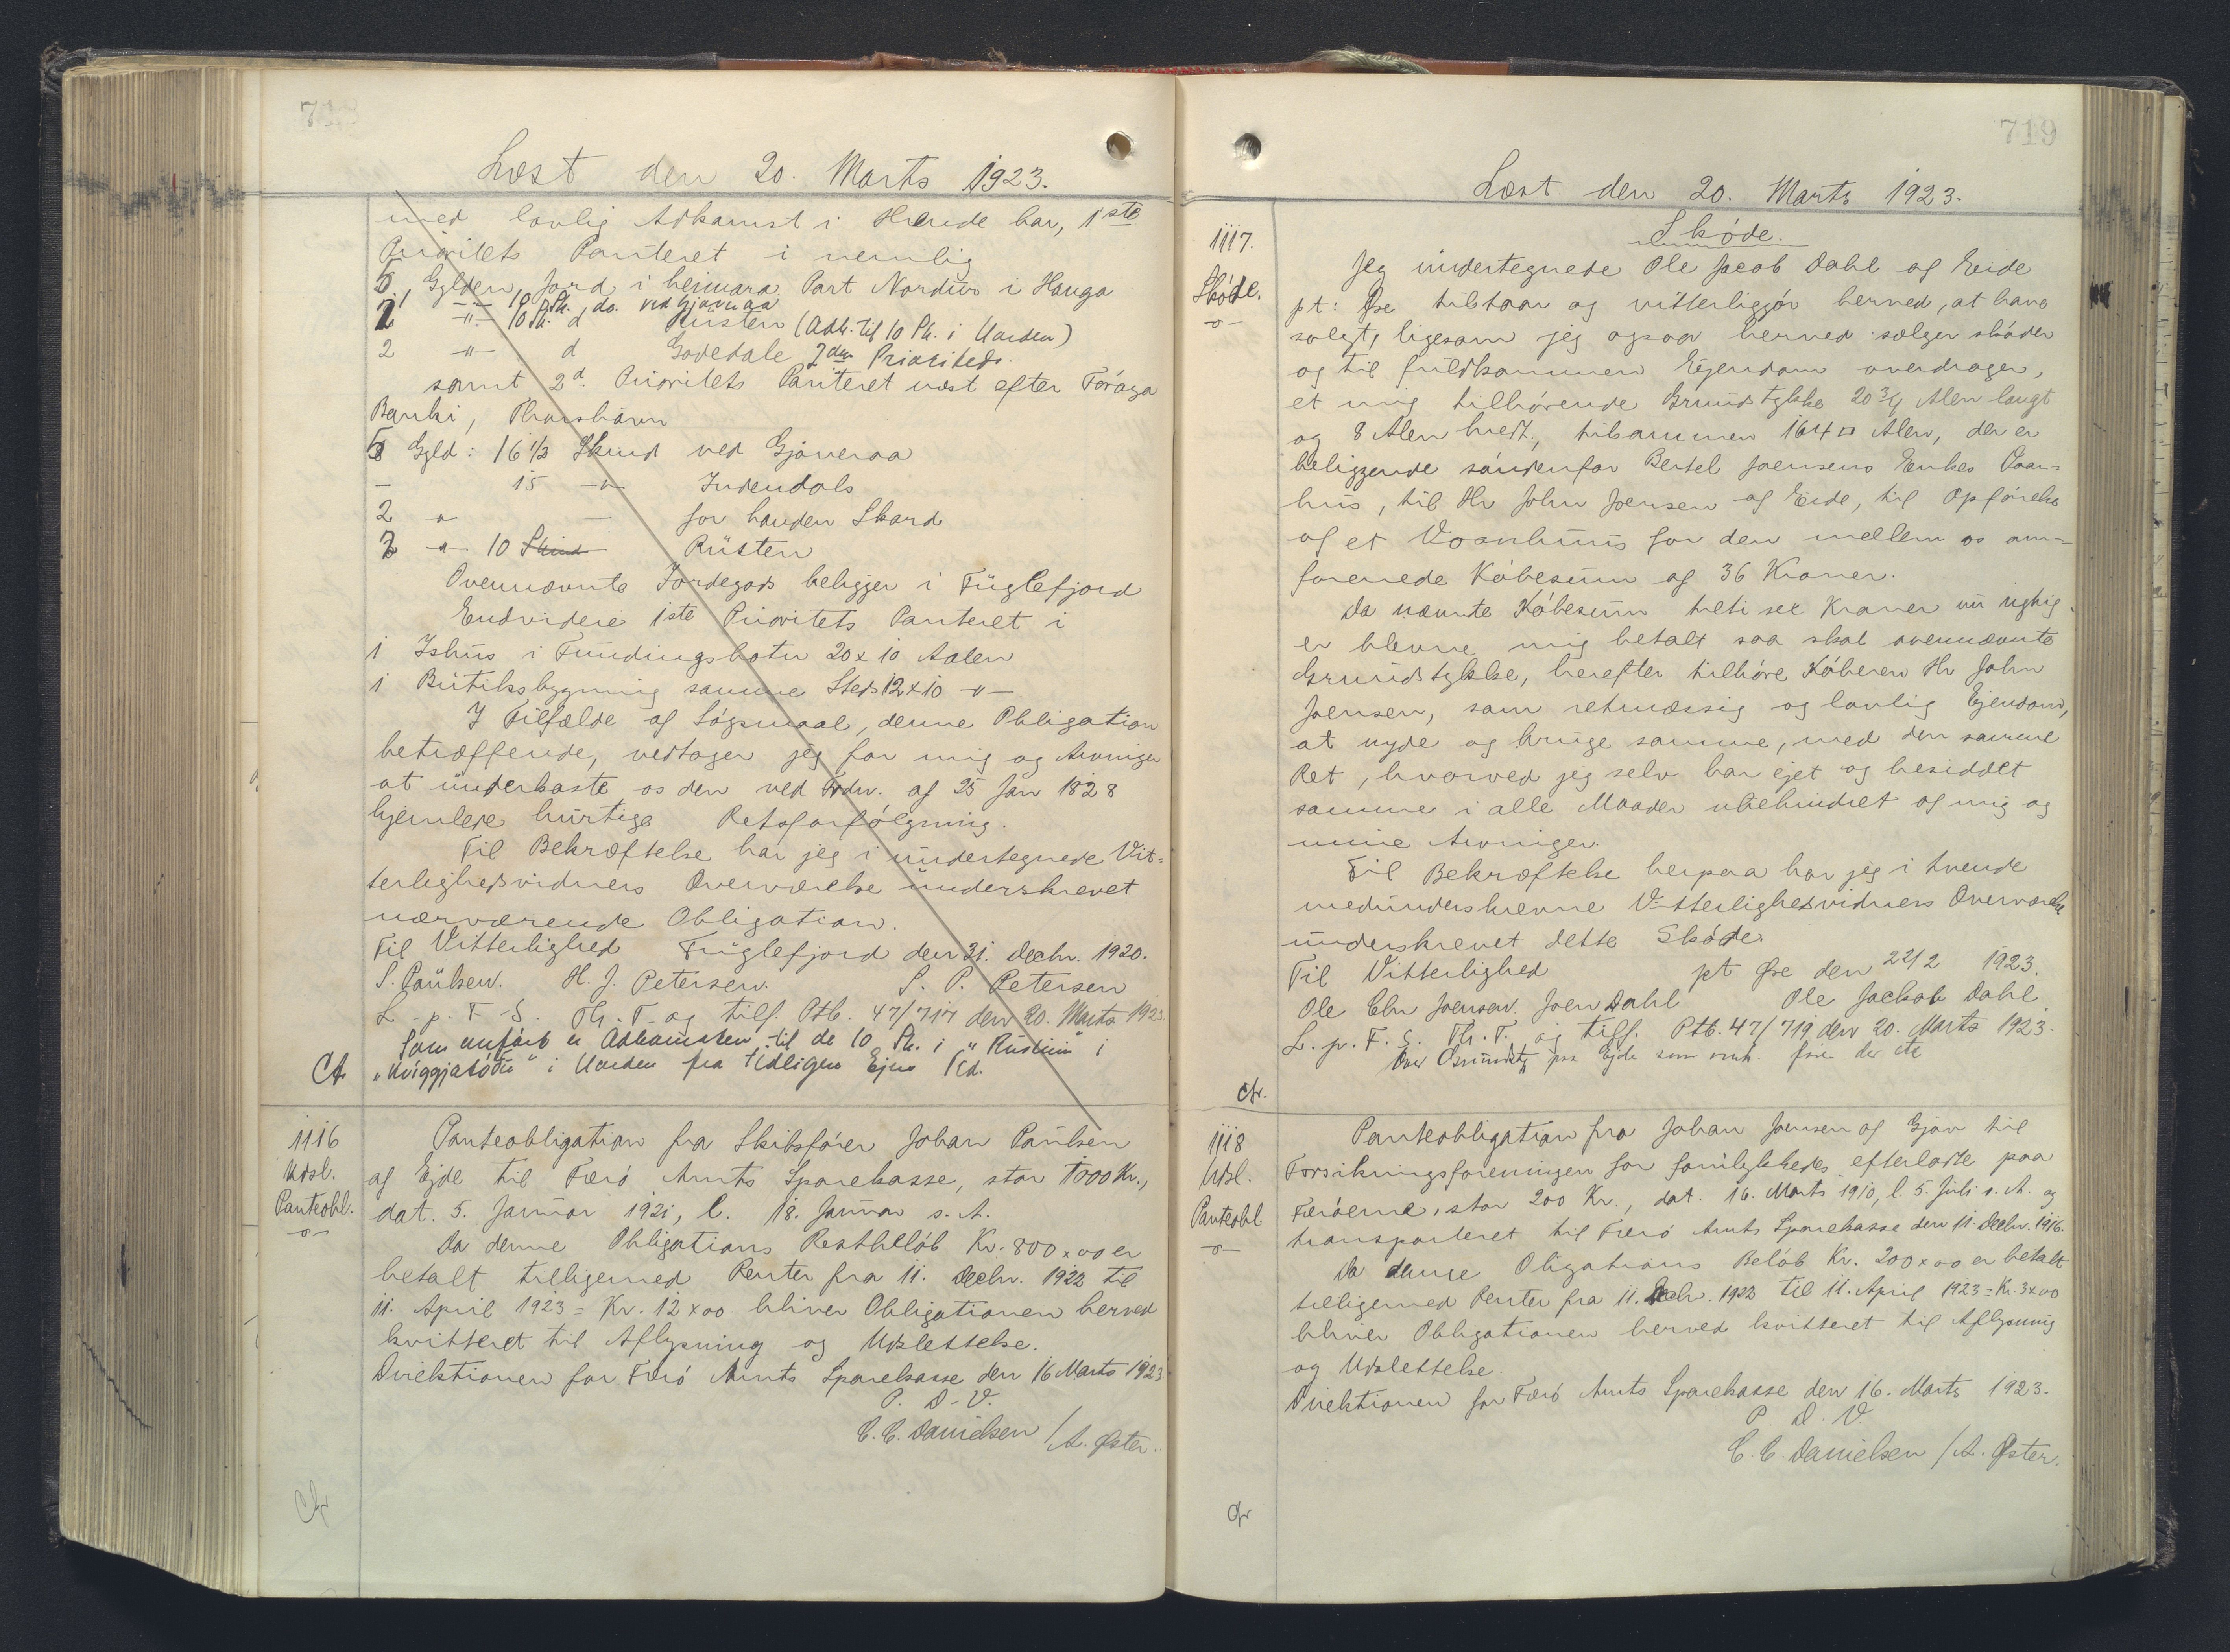 718
Læst den 20. Marts 1923.
med lovlig Adkomst i Hænde har, 1ste
Prioritets Panteret i nemlig
5 Gylden Jord i heimara Part Nordur i Hauga
1 -"- 10 Sk. do. ved Gjaveraa
2 -"- 10 Sk. d Rüsten (Adk. til 10 Sk. i Uorden)
2 -"- d Godedale 2den Prioritets
samt 2d. Prioritets Panteret næst efter Föroya
Banki, Thorshavn
8 Gyld: 16 1/3 Skind ved Gjóveraa
- 15 -"- Indendals
2 " - for handen Skard
2 -"- 10 Skind Rüsten
Ovennævnte Jordegods beligger i Fuglefjord
Endvidere 1ste Prioritets Panteret i
1 Ishus i Fundingsbotn 20 x 10 Aalen
1 Butiksbygning samme Sted 12 x 10 -"-
I Tilfælde af Søgsmaal, denne Obligation
betræffende, vedtager jeg for mig og Arvinger
at underkaste os den ved Frdn. af 25 Jan 1828
hjemlede hurtige Retsforfølgning.
Til Bekræftelse har jeg i undertegnede Vit-
terlighedsvidners Overværelse underskrevet
nærværende Obligation.
Til Vitterlighed Fuglefjord den 31. Decbr. 1920.
S. Paulsen. H. J. Petersen. S. P. Petersen
L. p. F. S. Th. T. og tilf. Ptb. 47/717 den 20. Marts 1923.
Som anført er Adkomsten til de 10 Sk. i "Rustum" i
i Uorden fra tidligere Ejers Tid.
1116
Udsl.
Panteobl.
-o-
Panteobligation fra Skibsfører Johan Paulsen
af Ejde til Færø Amts Sparekasse, stor 1000 Kr.,
dat. 5. Januar 1921, l. 18. Januar s. A.
Da denne Obligations Restbeløb Kr. 800 x 00 er
betalt tilligemed Renter fra 11. Decbr. 1922 til
11. April 1923 = Kr. 12 x 00 bliver Obligationen herved
kvitteret til Aflysning og Udslettelse.
Direktionen for Færø Amts Sparekasse den 16 Marts 1923
P. D. V.
C. C. Danielsen / A. Øster.
719
Læst den 20. Marts 1923.
1117.
Skøde.
-o-
Skøde.
Jeg undertegnede Ole Jacob Dahl af Eide
pt: Øre tilstaar og vitterliggjør herved, at have
solgt, ligesom jeg ogsaa herved sælger skøder
og til fuldkommen Ejendom overdrager,
et mig tilhørende Grundstykke 20 3/4 Alen langt
og 8 Alen bredt, tilsammen 164 □ Alen, der er
beliggende søndenfor Bertel Joensens Enkes Vaan-
hus, til Hr John Joensen af Eide, til Opførelse
af et Voanhus for den mellem os om-
forenede Købesum af 36 Kroner.
Da nævnte Købesum treti sex Kroner nu rigtig
er blevne mig betalt saa skal ovennævnte
Grundstykke, herefter tilhøre Køberen Hr John
Joensen, som retmæssig og lovlig Ejendom,
at nyde og bruge samme, med den samme
Ret, hvorved jeg selv har ejet og besiddet
samme i alle Maader ubehindret af mig og
mine Arvinger.
Til Bekræftelse herpaa har jeg i tvende
medunderskrevne Vitterlighedsvidners Overværelse
underskrevet dette Skøde.
Til Vitterlighed pt Øre den 22/2 1923.
Ole Chr Joensen. Joen Dahl Ole Jackob Dahl.
L. p. F. S. Th. T. og tilf. Ptb. 47/719 den 20. Marts 1923.
paa Ejde som
1118
Udsl.
Panteobl
-o-
Panteobligation fra Johan Joensen af Gjov til
Forsikringsforeningen for forulykkedes efterladte paa
Færøerne, stor 200 Kr., dat. 16. Marts 1910, l. 5. Juli s. A. og
transporteret til Færø Amts Sparekasse den 11. Decbr. 1916.
Da denne Obligations Beløb Kr. 200 x 00 er betalt
tilligemed Renter fra 11. Decbr. 1922 til 11. April 1923 = Kr. 3 x 00
bliver Obligationen herved kvitteret til Aflysning
og Udslettelse.
Direktionen for Færø Amts Sparekasse den 16. Marts 1923.
P. D. V.
C. C. Danielsen / A. Øster.